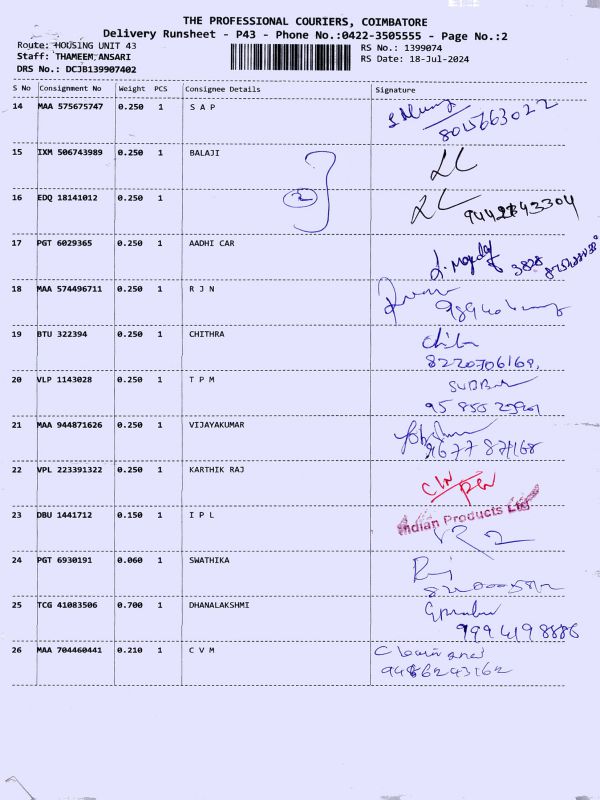 THE PROFESSIONAL COURIERS, COIMBATORE
Delivery Runsheet - P43 - Phone No.:0422-3505555 - Page No.:2
Route: HOUSING UNIT 43
RS No.: 1399074
Staff: THAMEEM ANSARI
RS Date: 18-Jul-2024
DRS No.: DCJB139907402
S No Consignment No Weight PCS Consignee Details Signature
14 MAA 575675747 0.250 1 S A P
8015663022
15 IXM 506743989 0.250 1 BALAJI
16 EDQ 18141012 0.250 1
2
17 PGT 6029365 0.250 1 AADHI CAR
3828
18 MAA 574496711 0.250 1 R J N
19 BTU 322394 0.250 1 CHITHRA
8220706169,
20 VLP 1143028 0.250 1 T P M
21 MAA 944871626 0.250 1 VIJAYAKUMAR
9677 87168
22 VPL 223391322 0.250 1 KARTHIK RAJ
23 DBU 1441712 0.150 1 I P L
Indian Products Ltd
24 PGT 6930191 0.060 1 SWATHIKA
25 TCG 41083506 0.700 1 DHANALAKSHMI
9994198886
26 MAA 704460441 0.210 1 C V M
9486243162